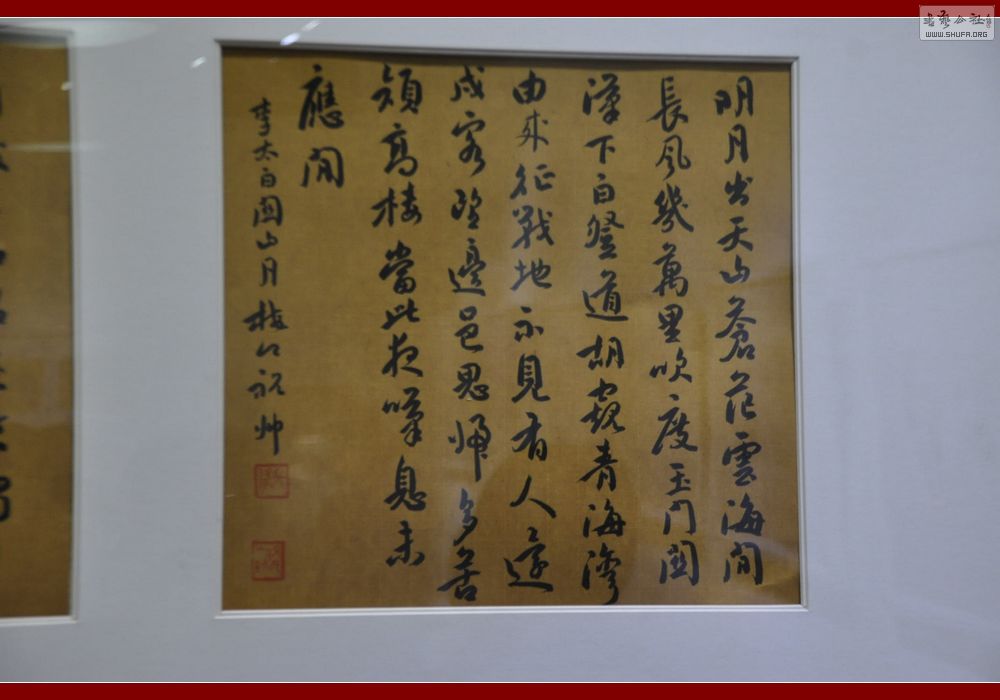 明月出天山蒼茫雲海間
長風幾萬里吹度玉門關
漢下白登道胡窺青海灣
由來征戰地不見有人還
戍客望邊邑思歸多苦
顏高樓當此夜嘆息未
應閒
李太白關山月梅祝帥
書藝公社
WWW.SHUFA.ORG